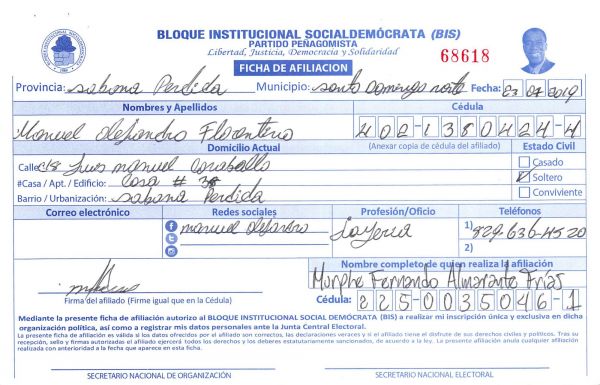 BLOQUE INSTITUCIONAL SOCIALDEMÓCRATA (BIS)
PARTIDO PEÑAGOMISTA
Libertad, Justicia, Democracia y Solidaridad
68618
FICHA DE AFILIACION
Provincia: sabana Perdida Municipio: santo Domingo norte Fecha: 23 07 2019
Nombres y Apellidos Cédula
Manuel Alejandro Florentino 402-1380424-4
Domicilio Actual (Anexar copia de cédula del afiliado) Estado Civil
Calle: C/8 Luis manuel Caraballo Casado
#Casa / Apt. / Edificio: Casa # 38 Soltero
Barrio / Urbanización: sabana Perdida Conviviente
Correo electrónico Redes sociales Profesión/Oficio Teléfonos
manuel alejandro 1) 829-636-4520
2)
Nombre completo de quien realiza la afiliación
Murphe Fernando Almarante Frias
Firma del afiliado (Firme igual que en la Cédula) Cédula: 225-0035046-1
Mediante la presente ficha de afiliación autorizo al BLOQUE INSTITUCIONAL SOCIAL DEMÓCRATA (BIS) a realizar mi inscripción única y exclusiva en dicha
organización política, así como a registrar mis datos personales ante la Junta Central Electoral.
La presente ficha de afiliación es válida si los datos ofrecidos por el afiliado son correctos, las declaraciones veraces y si el afiliado tiene el disfrute de sus derechos civiles y políticos. Tras su
recepción, sello y firmas autorizadas el afiliado ejercerá todos los derechos y los deberes estatutariamente sancionados, de acuerdo a la ley. La presente afiliación anula cualquier afiliación
realizada con anterioridad a la fecha que aparece en esta ficha.
SECRETARIO NACIONAL DE ORGANIZACIÓN SECRETARIO NACIONAL ELECTORAL